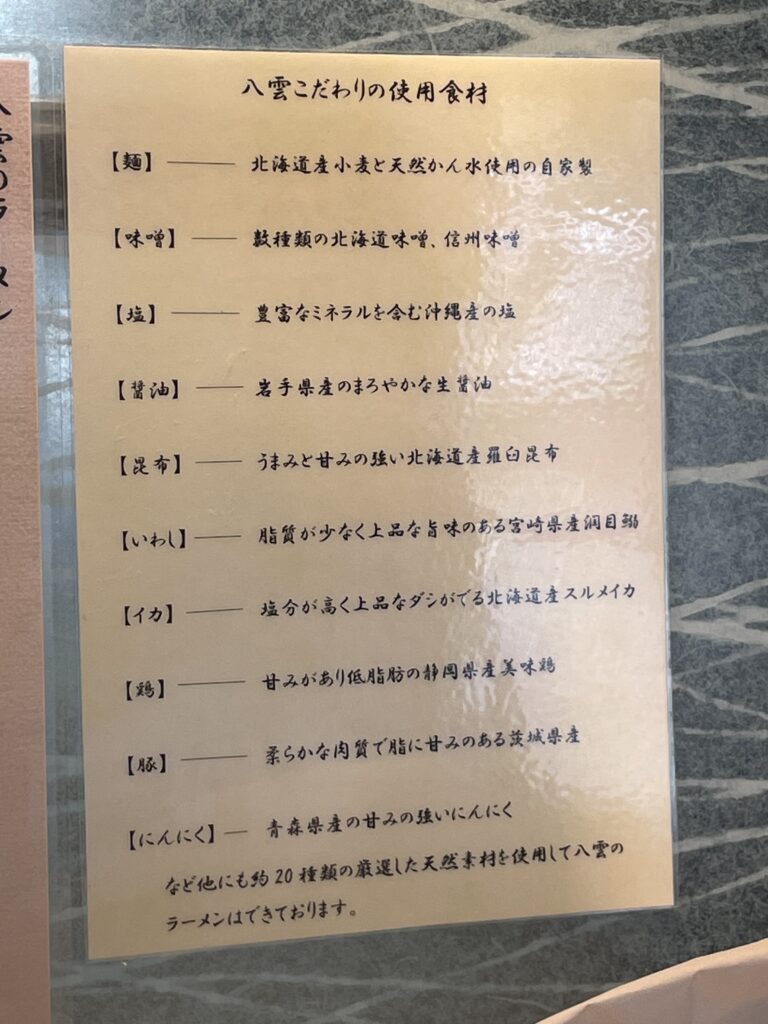 八雲こだわりの使用食材
【麺】 ―― 北海道産小麦と天然かん水使用の自家製
【味噌】 ―― 数種類の北海道味噌、信州味噌
【塩】 ―― 豊富なミネラルを含む沖縄産の塩
【醤油】 ―― 岩手県産のまろやかな生醤油
【昆布】 ―― うまみと甘みの強い北海道産羅臼昆布
【いわし】 ―― 脂質が少なく上品な旨味のある宮崎県産潤目鰯
【イカ】 ―― 塩分が高く上品なダシがでる北海道産スルメイカ
【鶏】 ―― 甘みがあり低脂肪の静岡県産美味鶏
【豚】 ―― 柔らかな肉質で脂に甘みのある茨城県産
【にんにく】 ― 青森県産の甘みの強いにんにく
など他にも約20種類の厳選した天然素材を使用して八雲の
ラーメンはできております。